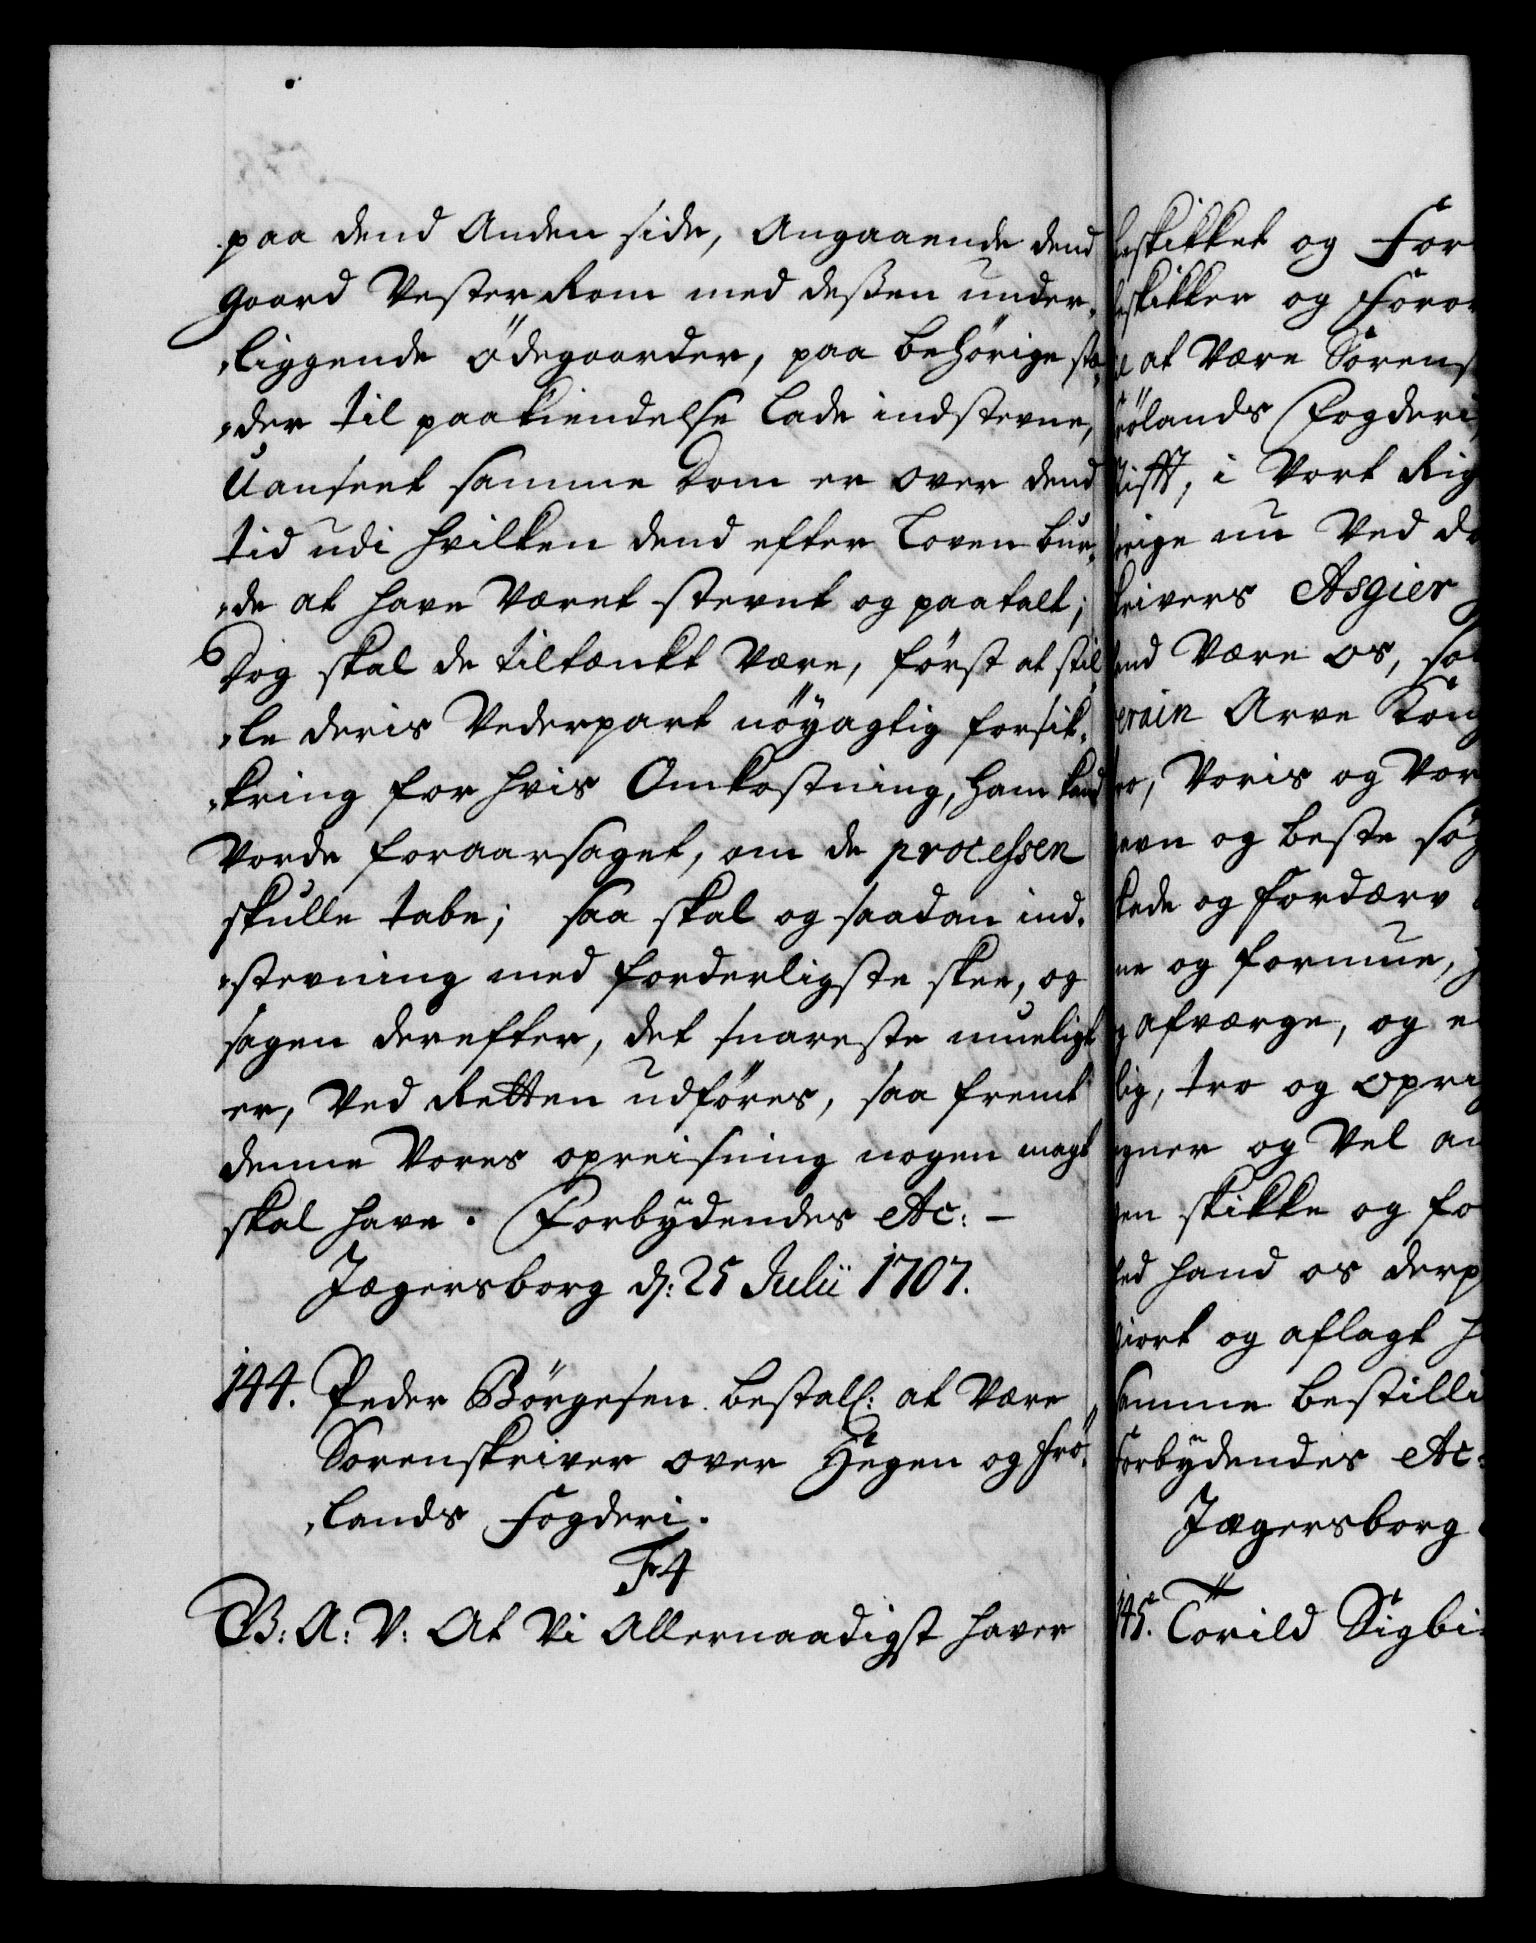 paa dend Anden side, Angaaende dend
gaard Vester Rom med deßen under-
„liggende ödegaarder, paa behörige stæ-
„der til paakiendelse lade indstevne,
Uanseet samme dom er over dend
tid udi hvilken dend efter Loven bur-
„de at have Været stevnt og paatalt;
Dog skal de tiltænkt Være, först at stil-
„le deris Vederpart nöyagtig forsik-
„kring for hvis Omkostning, ham kand
Vorde foraarsaget, om de processen
skulle tabe; saa skal og saadan ind-
„stevning med forderligste skee, og
sagen derefter, det snareste mueligt
er, Ved Retten udföres, saa fremt
denne Vores opreisning nogen magt
skal have. Forbydendes etc: –
Jægersborg d: 25 Julii 1707.
144. Peder Börgesen bestall: at Være
Sorenskriver over Hegen og Frö-
„lands Fogderi.
F4
G: A: V: At Vi Allernaadigst haver
beskikket og For
beskikker og Foror
at Være Sorens
Frölands Fogderi
Stifft, i Vort Rig
nu Ved dö
skrivers Asgier
hand Være os, so
Arve Kong
Voris og Vor
og beste sög
og fordærv
og formue,
afværge, og e
tro og opri
og Vel an
skikke og fo
hand os derp
giort og aflagt h
samme bestilli
Forbydendes etc:
Jægersborg
145. Torild Sigbi